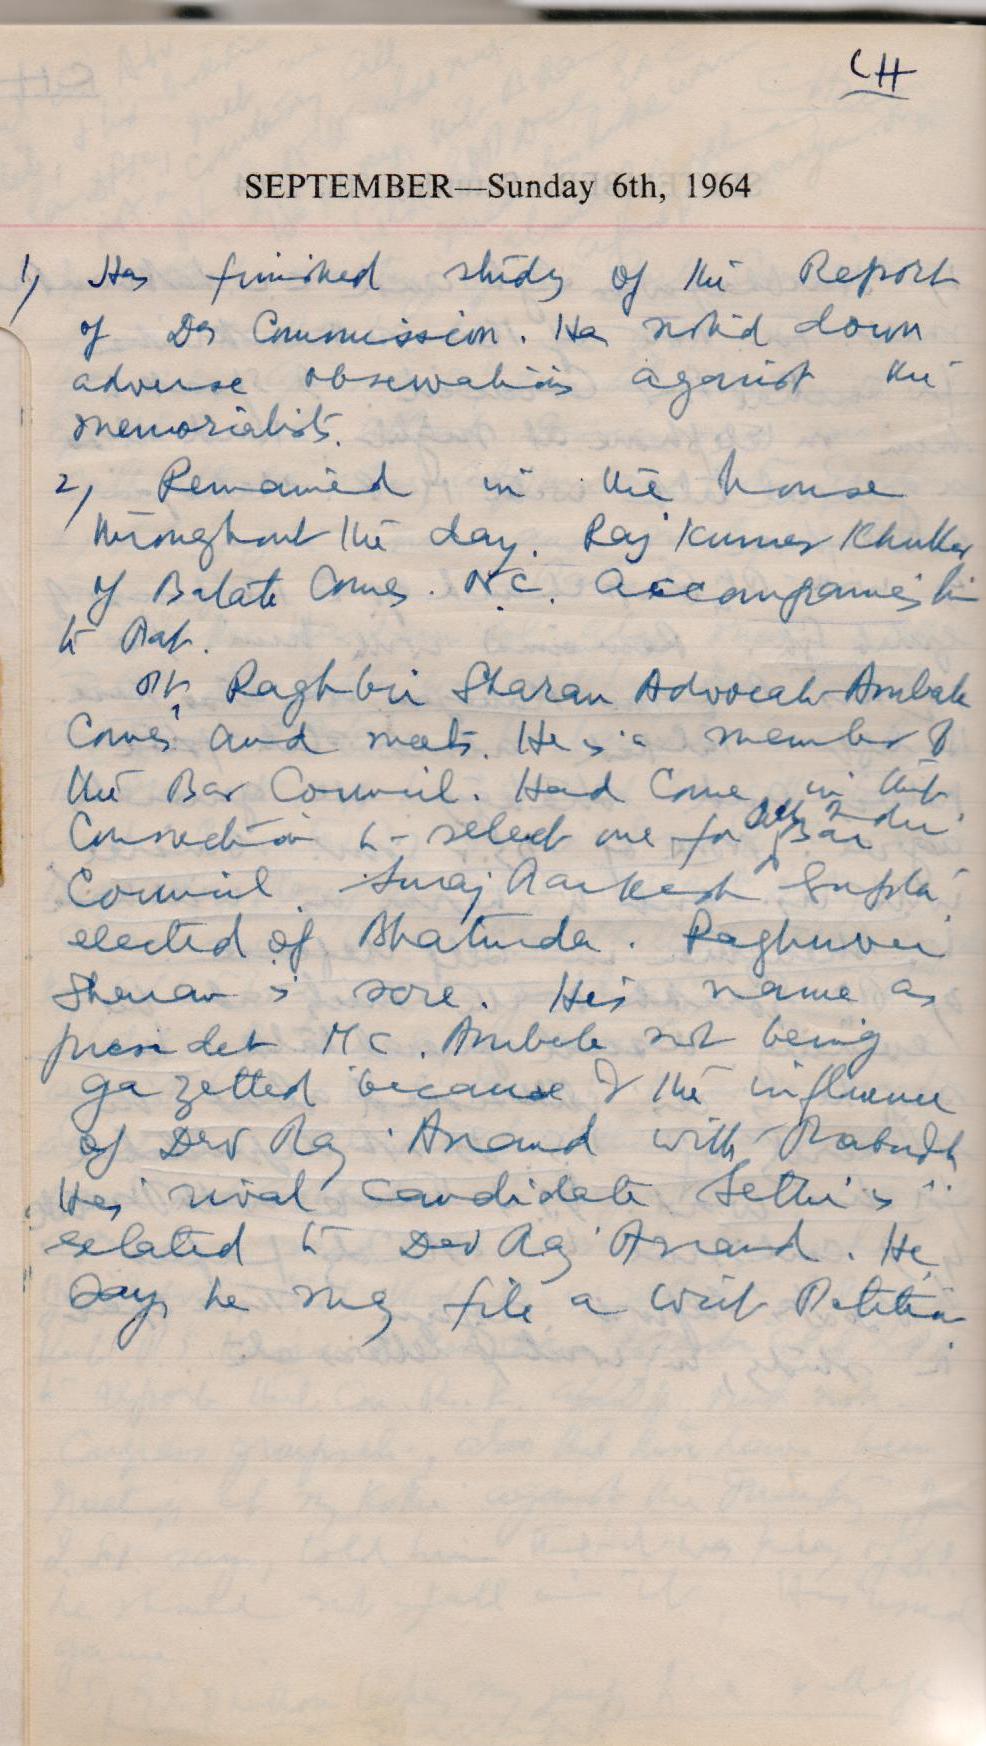 CH
SEPTEMBER—Sunday 6th, 1964
1) Has finished study of the Report
of Das Commission. Has noted down
adverse observations against the
memorialists.
2) Remained in the house
throughout the day. Raj Kumar
of Batala Comes. N.C. accompanies him
to
Raghbir Sharan Advocate Ambala
Comes and meets. He is a member of
the Bar Council. Had Come in that
Connection to select one for All India Bar
Council. Suraj Parkash Gupta
elected of Bhatinda. Raghuvir
Sharan is sore. His name as
president M C. Ambala not being
gazetted because of the influence
of Dev Raj Anand with Prabodh
His rival candidate Sethi is
related to Dev Raj Anand. He
Says he may file a Writ Petition.